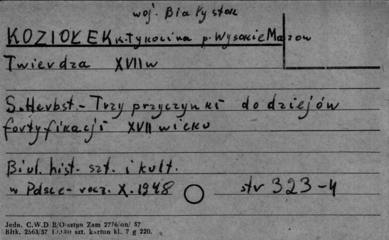 woj. Białystok
KOZIOŁEK k. Tykocina p. Wysokie Mazow
Twierdza XVII w
S. Herbst. - Trzy przyczynki do dziejów
fortyfikacji XVII wieku
Biul. hist. szt. i kult.
w Polsce - rocz. X. 1948 str 323-4
Jedn. C.W.D B/Olsztyn Zam 2776/on/ 57
Bltk. 2563/57 kl. 7 g 220.